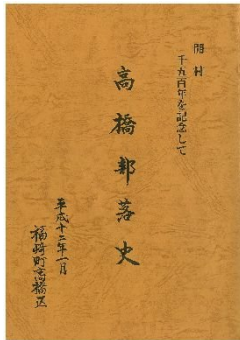 開村
千九百年を記念して
高橋部落史
平成十二年一月
福崎町高橋区